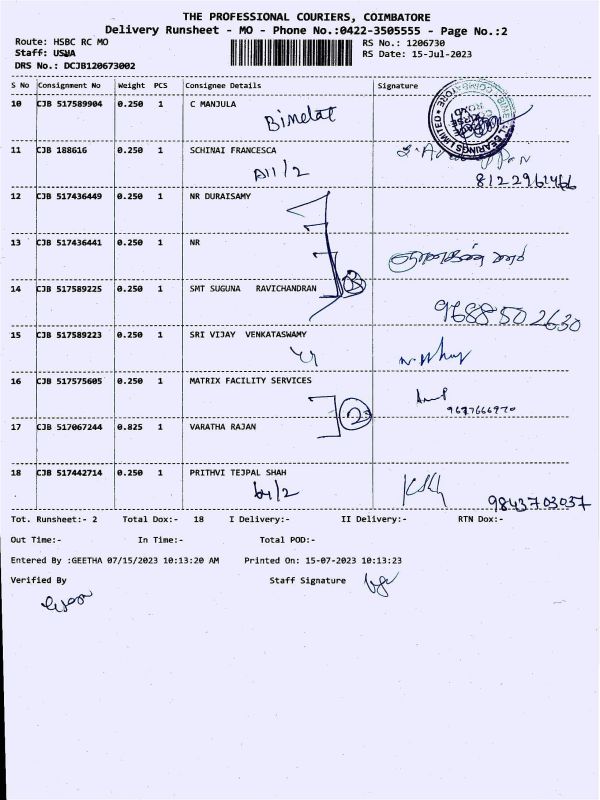 THE PROFESSIONAL COURIERS, COIMBATORE
Delivery Runsheet - MO - Phone No.:0422-3505555 - Page No.:2
Route: HSBC RC MO RS No.: 1206730
Staff: USHA RS Date: 15-Jul-2023
DRS No.: DCJB120673002
S No Consignment No Weight PCS Consignee Details Signature
10 CJB 517589904 0.250 1 C MANJULA
Bimelat
11 CJB 188616 0.250 1 SCHINAI FRANCESCA
A11/2
8122961466
12 CJB 517436449 0.250 1 NR DURAISAMY
13 CJB 517436441 0.250 1 NR
14 CJB 517589225 0.250 1 SMT SUGUNA RAVICHANDRAN
9688502630
15 CJB 517589223 0.250 1 SRI VIJAY VENKATASWAMY
16 CJB 517575605 0.250 1 MATRIX FACILITY SERVICES
9677666970
2
17 CJB 517067244 0.825 1 VARATHA RAJAN
18 CJB 517442714 0.250 1 PRITHVI TEJPAL SHAH
9843703037
Tot. Runsheet:- 2 Total Dox:- 18 I Delivery:- II Delivery:- RTN Dox:-
Out Time:- In Time:- Total POD:-
Entered By :GEETHA 07/15/2023 10:13:20 AM Printed On: 15-07-2023 10:13:23
Verified By Staff Signature